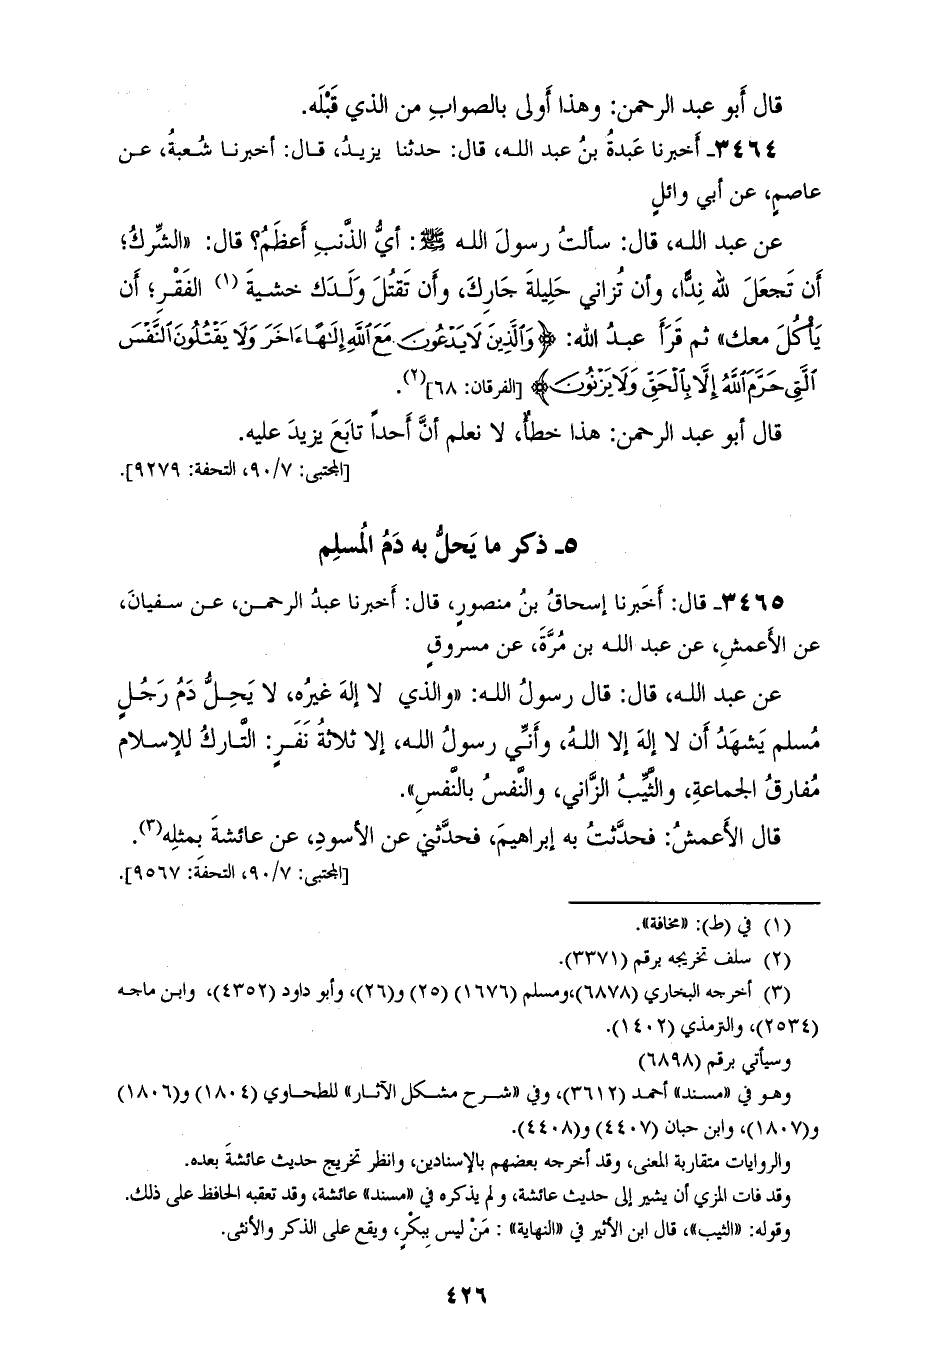 قال أَبو عبد الرحمن: وهذا أَولى بالصوابِ من الذي قَبْلَه.
٣٤٦٤ـ أَخبرنا عَبدةُ بنُ عبد اللـه، قال: حدثنا يزيـدُ، قـال: أخبرنـا شُعبةُ، عـن
عاصمٍ، عن أبي وائلٍ
عن عبد اللـه، قال: سألتُ رسولَ اللـه ﷺ: أيُّ الذَّنبِ أَعظَمُ؟ قال: «الشِّركُ؛
أن تَجعَلَ لله نِدًّا، وأن تُزاني حَلِيلةَ جَارِكَ، وأن تَقتُلَ وَلَـدَك خشـيةَ (١) الفَقْرِ؛ أن
يَأكُلَ معك» ثم قَرَأَ عبـدُ الله: ﴿وَٱلَّذِينَ لَا يَدْعُونَ مَعَ ٱللَّهِ إِلَـٰهًا ءَاخَرَ وَلَا يَقْتُلُونَ ٱلنَّفْسَ
ٱلَّتِى حَرَّمَ ٱللَّهُ إِلَّا بِٱلْحَقِّ وَلَا يَزْنُونَ﴾ [الفرقان: ٦٨](٢).
قال أبو عبد الرحمن: هذا خطأٌ، لا نعلم أنَّ أَحداً تابَعَ يزيدَ عليه.
[المجتبى: ٩٠/٧، التحفة: ٩٢٧٩].
٥ـ ذكر ما يَحلُّ به دَمُ المُسلِم
٣٤٦٥ـ قال: أَخبَرنا إسحاقُ بنُ منصورٍ، قال: أَخبرنا عبدُ الرحمـن، عـن سـفيانَ،
عن الأَعمشِ، عن عبد اللـه بن مُرَّةَ، عن مسروقٍ
عن عبد اللـه، قال: قال رسولُ اللـه: «والذي لا إلهَ غيرُه، لا يَحِـلُّ دَمُ رَجُـلٍ
مُسلم يَشهَدُ أن لا إلهَ إلا اللـهُ، وأَنِّي رسولُ اللـه، إلا ثلاثةُ نَفَـرٍ: التَّـاركُ للإسـلام
مُفارقُ الجماعةِ، والثَّيِّبُ الزَّاني، والنَّفسُ بالنَّفسِ».
قال الأَعمشُ: فحدَّثتُ به إبراهيمَ، فحدَّثني عن الأسودِ، عن عائشةَ بمثلِه(٣).
[المجتبى: ٩٠/٧، التحفة: ٩٥٦٧].
(١) في (ط): «مخافة».
(٢) سلف تخريجه برقم (٣٣٧١).
(٣) أخرجه البخاري (٦٨٧٨)،ومسلم (١٦٧٦) (٢٥) و(٢٦)، وأبو داود (٤٣٥٢)، وابـن ماجـه
(٢٥٣٤)، والترمذي (١٤٠٢).
وسيأتي برقم (٦٨٩٨)
وهـو في «مسـند» أحمد (٣٦١٢)، وفي «شـرح مشـكل الآثـار» للطحـاوي (١٨٠٤) و(١٨٠٦)
و(١٨٠٧)، وابن حبان (٤٤٠٧) و(٤٤٠٨).
والروايات متقاربة المعنى، وقد أخرجه بعضهم بالإسنادين، وانظر تخريج حديث عائشةَ بعده.
وقد فات المزي أن يشير إلى حديث عائشة، و لم يذكره في «مسند» عائشة، وقد تعقبه الحافظ على ذلك.
وقوله: «الثيب»، قال ابن الأثير في «النهاية» : مَنْ ليس بِبكْرٍ، ويقع على الذكر والأنثى.
٤٢٦